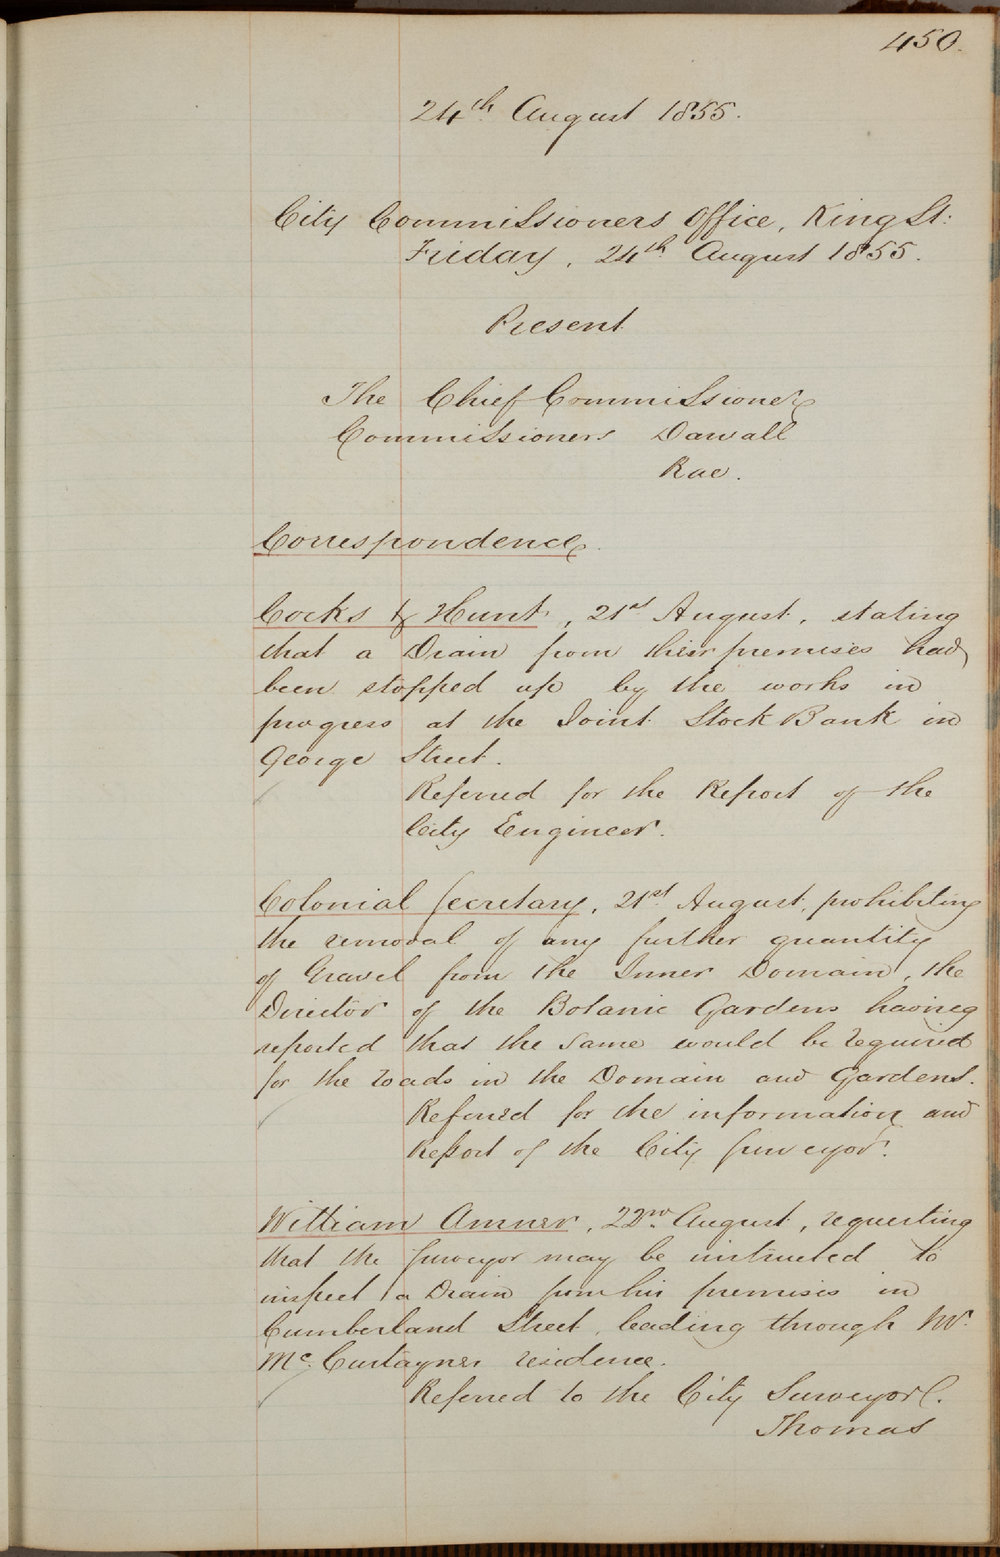 450.
24th August 1855.
City Commissioners Office, King St:
Friday, 24th August 1855.
Present
The Chief Commissioner
Commissioners Darvall
Rae.
Correspondence.
Cocks & Hunt, 21st August, stating
that a Drain from their premises had
been stopped up by the works in
progress at the Joint Stock Bank in
George Street.
Referred for the Report of the
City Engineer.
Colonial Secretary, 21st August, prohibiting
the removal of any further quantity
of Gravel from the Inner Domain, the
Director of the Botanic Gardens having
reported that the same would be required
for the roads in the Domain and Gardens.
Referred for the information and
Report of the City Surveyor.
William Amner, 22nd August, requesting
that the Surveyor may be instructed to
inspect a Drain from his premises in
Cumberland Street, leading through Mr.
Mc. residence.
Referred to the City Surveyor.
Thomas